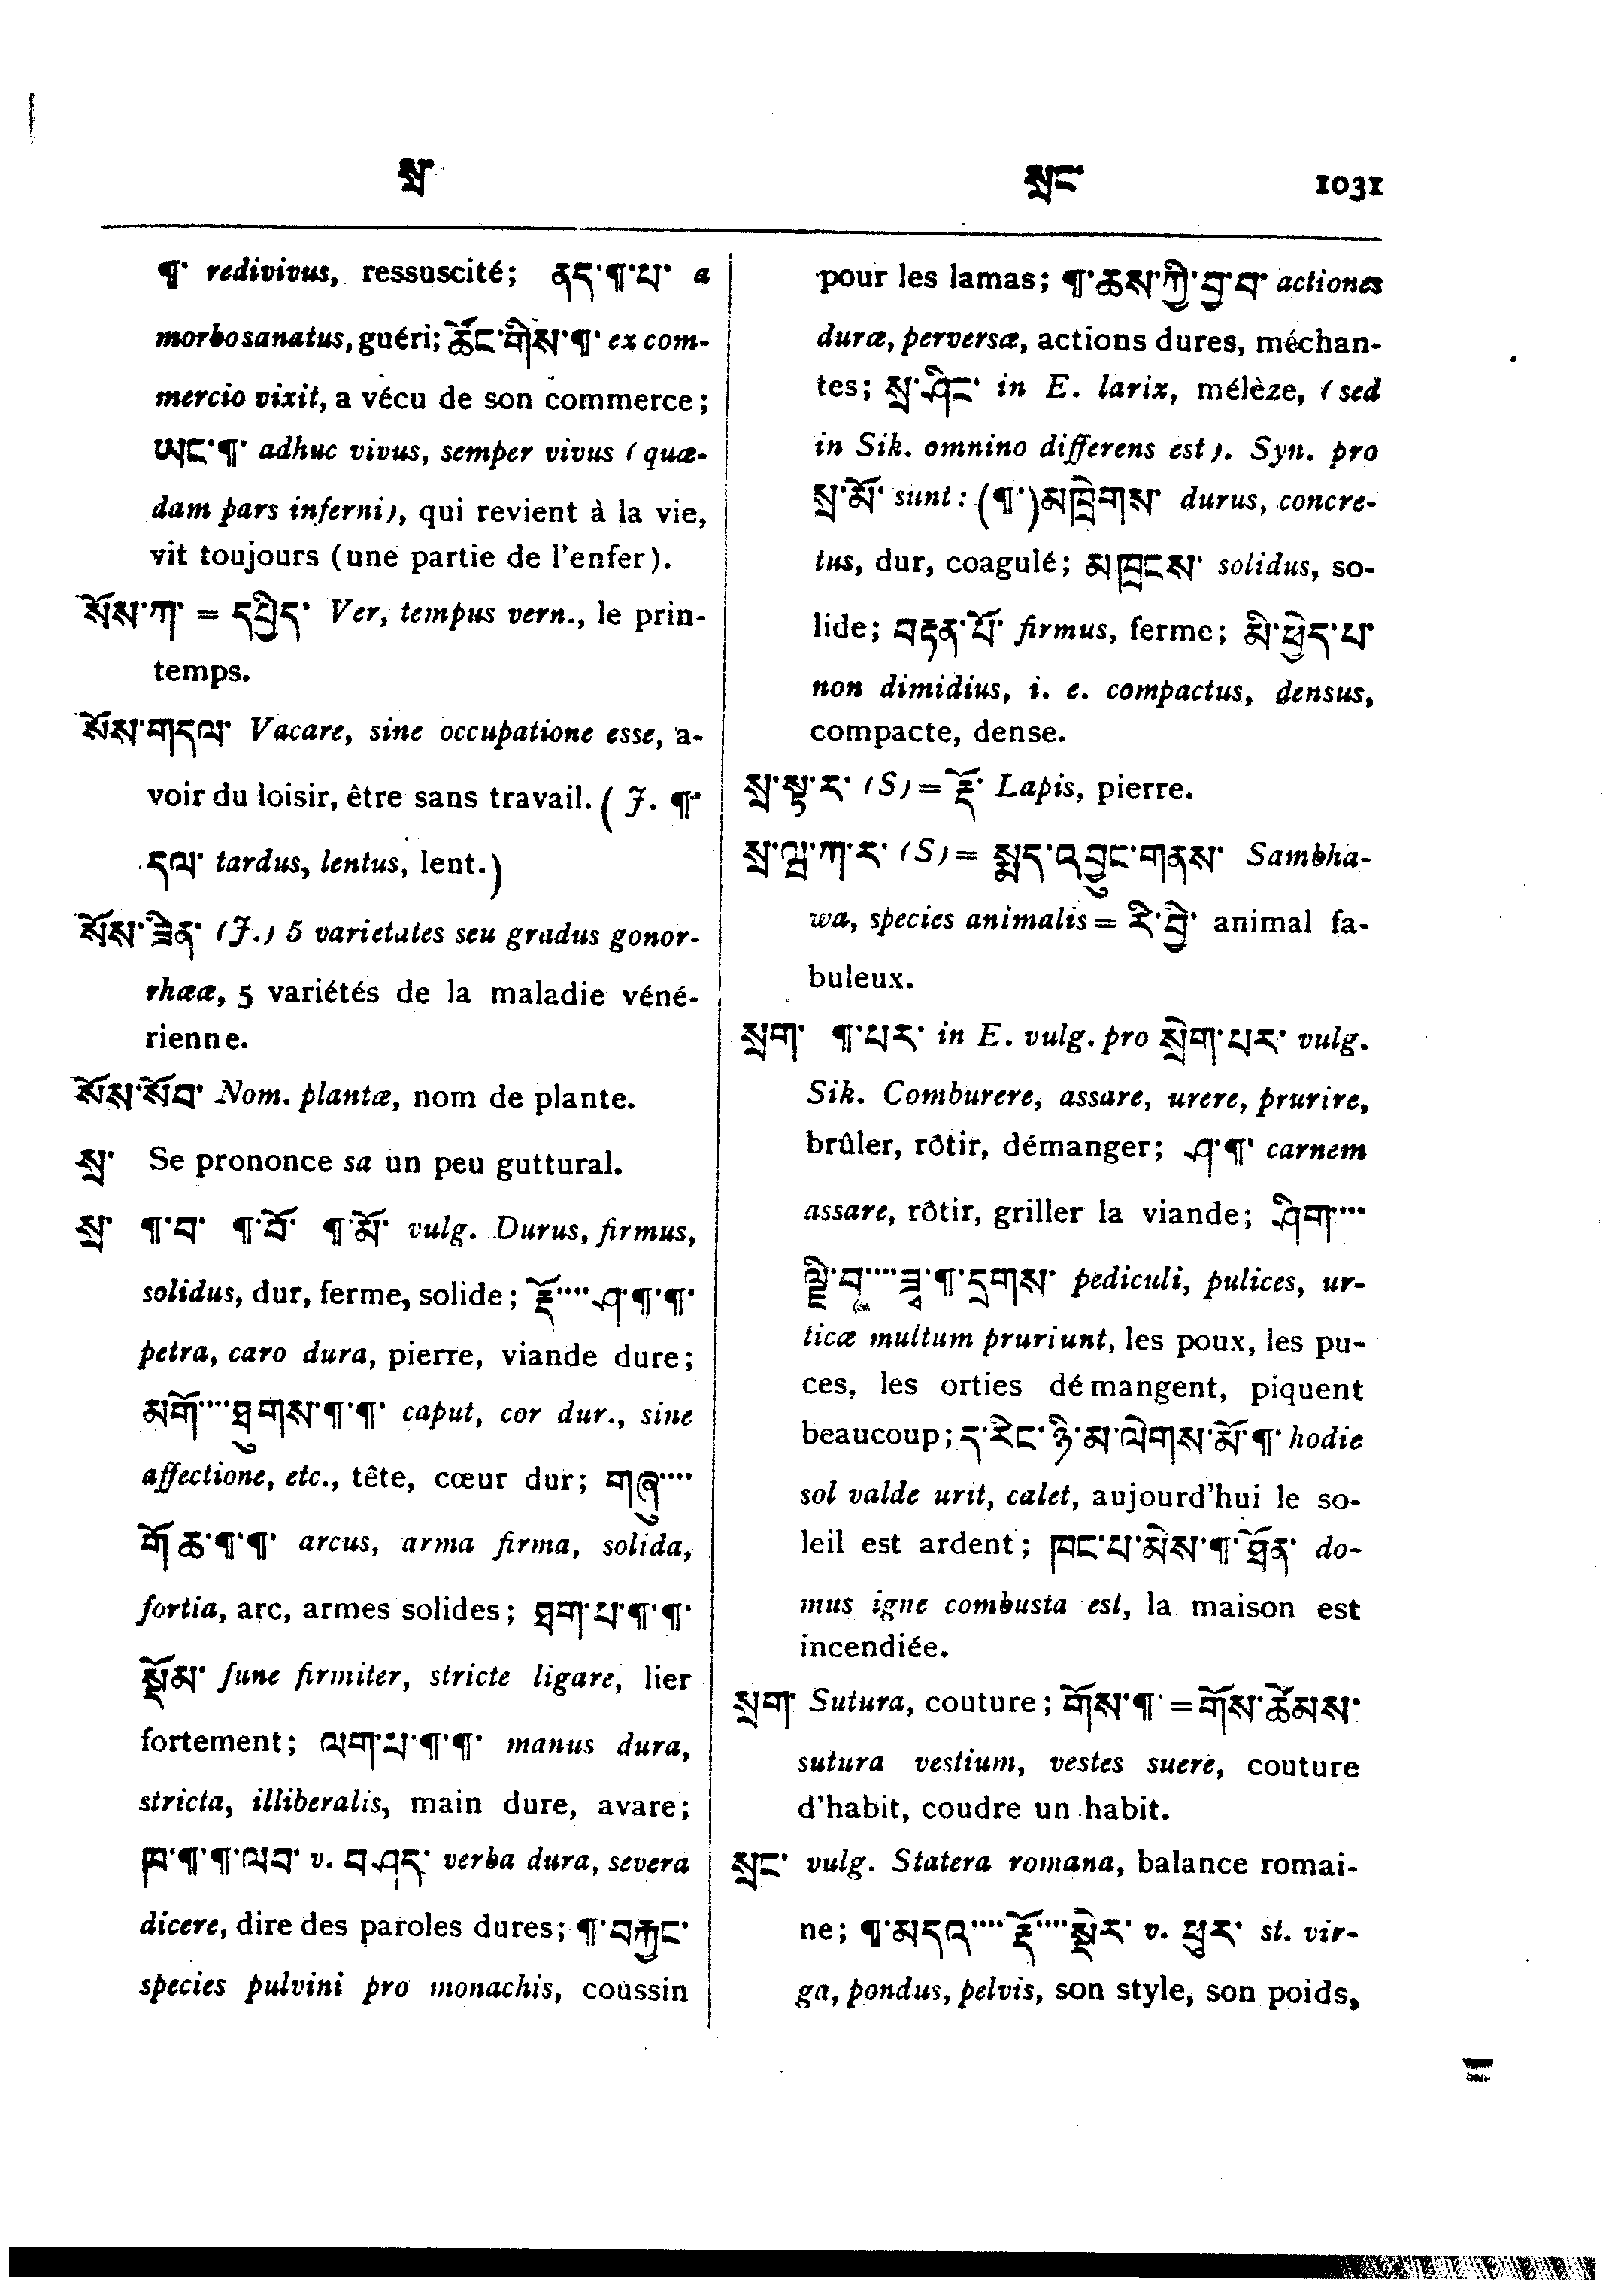 སྲ་
སྲང་ 1031
¶་ redivivus, ressuscité; ནད་¶་པ་ a
morbo sanatus, guéri; ཚོང་གིས་¶་ ex com-
mercio vixit, a vécu de son commerce;
ཡང་¶་ adhuc vivus, semper vivus (quæ-
dam pars inferni), qui revient à la vie,
vit toujours (une partie de l'enfer).
སོས་ཀ་ = དཔྱིད་ Ver, tempus vern., le prin-
temps.
སོས་གདལ་ Vacare, sine occupatione esse, a-
voir du loisir, être sans travail. (J. ¶་
དལ་ tardus, lentus, lent.)
སོས་ཟིན་ (J.) 5 varietates seu gradus gonor-
rhææ, 5 variétés de la maladie véné-
rienne.
སོས་སོབ་ Nom. plantæ, nom de plante.
སྲ་ Se prononce sa un peu guttural.
སྲ་ ¶་བ་ ¶་བོ་ ¶་མོ་ vulg. Durus, firmus,
solidus, dur, ferme, solide; རྡོ་....ཤ་¶་¶་
petra, caro dura, pierre, viande dure;
མགོ་....ཐུགས་¶་¶་ caput, cor dur., sine
affectione, etc., tête, cœur dur; གཞུ་....
གོ་ཆ་¶་¶་ arcus, arma firma, solida,
fortia, arc, armes solides; ཐག་པ་¶་¶་
སྡོམ་ fune firmiter, stricte ligare, lier
fortement; ལག་པ་¶་¶་ manus dura,
stricta, illiberalis, main dure, avare;
ཁ་¶་¶་ལབ་ v. བཤད་ verba dura, severa
dicere, dire des paroles dures; ¶་བརྐྱང་
species pulvini pro monachis, coussin
pour les lamas; ¶་ཆས་ཀྱི་བྱ་བ་ actiones
duræ, perversæ, actions dures, méchan-
tes; སྲ་ཤིང་ in E. larix, mélèze, (sed
in Sik. omnino differens est). Syn. pro
སྲ་མོ་ sunt: (¶་)མཁྲེགས་ durus, concre-
tus, dur, coagulé; མཁྲངས་ solidus, so-
lide; བརྟན་པོ་ firmus, ferme; མི་ཕྱེད་པ་
non dimidius, i. e. compactus, densus,
compacte, dense.
སྲ་སྟ་ར་ (S) = རྡོ་ Lapis, pierre.
སྲ་ལྦ་ཀ་ར་ (S) = སྨད་འབྱུང་གནས་ Sambha-
wa, species animalis = རི་བྱི་ animal fa-
buleux.
སྲག་ ¶་པར་ in E. vulg. pro སྲེག་པར་ vulg.
Sik. Comburere, assare, urere, prurire,
brûler, rôtir, démanger; ཤ་¶་ carnem
assare, rôtir, griller la viande; ཤིག་....
ལྗི་བ་....ཟྭ་¶་དྲགས་ pediculi, pulices, ur-
ticæ multum pruriunt, les poux, les pu-
ces, les orties démangent, piquent
beaucoup; ད་རེང་ཉི་མ་ལེགས་མོ་¶་ hodie
sol valde urit, calet, aujourd'hui le so-
leil est ardent; ཁང་པ་མེས་¶་ཐོན་ do-
mus igne combusta est, la maison est
incendiée.
སྲག་ Sutura, couture; གོས་¶་ = གོས་ཚེམས་
sutura vestium, vestes suere, couture
d'habit, coudre un habit.
སྲང་ vulg. Statera romana, balance romai-
ne; ¶་མདའ་....རྡོ་....སྡེར་ v. ཕུར་ st. vir-
ga, pondus, pelvis, son style, son poids,